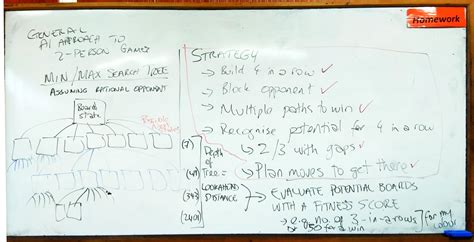 GENERAL
AI APPROACH TO
2-PERSON GAMES
MIN/MAX SEARCH TREE
ASSUMING RATIONAL OPPONENT
Board
state
Possible
(7)
(49)
(343)
(2401)
Depth
of
Tree =
LOOKAHEAD
DISTANCE
Homework
STRATEGY
→ Build 4 in a row ✓
→ Block opponent ✓
→ Multiple paths to win ✓
→ Recognise potential for 4 in a row
→ 2/3 with gaps ✓
→ Plan moves to get there ✓
→ EVALUATE POTENTIAL BOARDS
WITH A FITNESS SCORE
→ e.g. no. of 3-in-a-rows
or 50 for a win
for my
colour